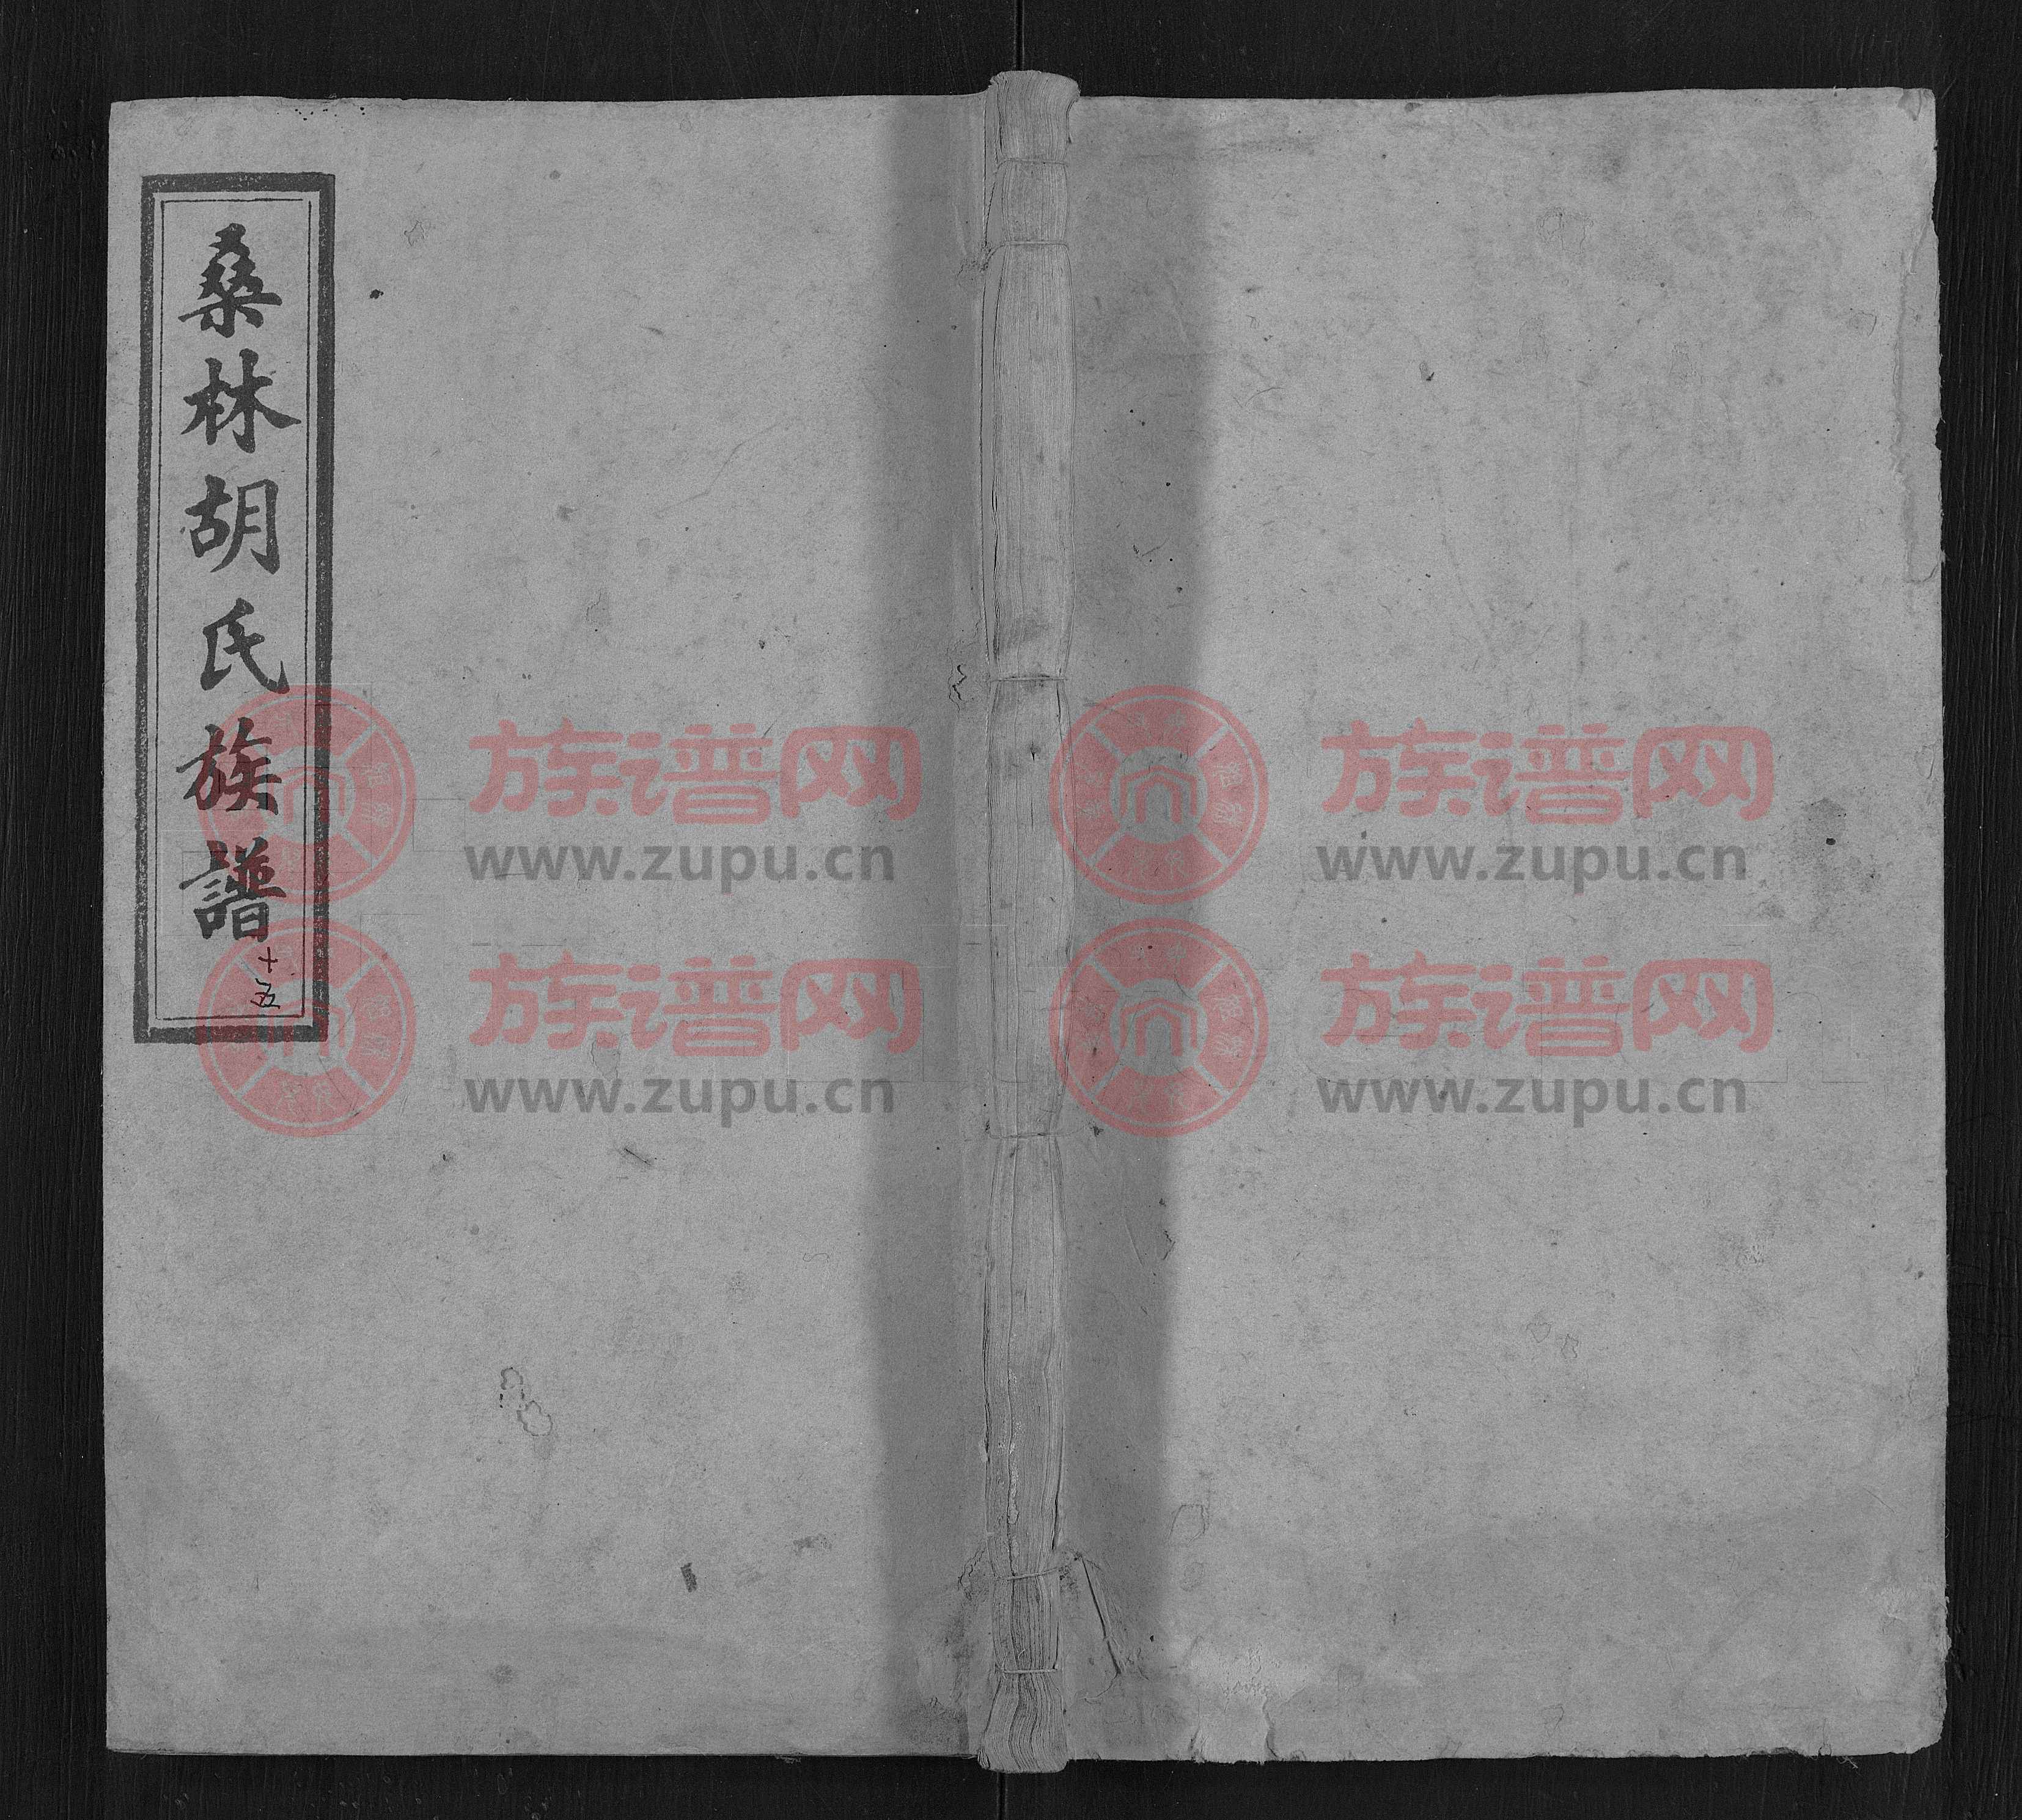 桑林胡氏族譜
十五
族谱网
www.zupu.cn
族谱网
www.zupu.cn
族谱网
www.zupu.cn
族谱网
www.zupu.cn